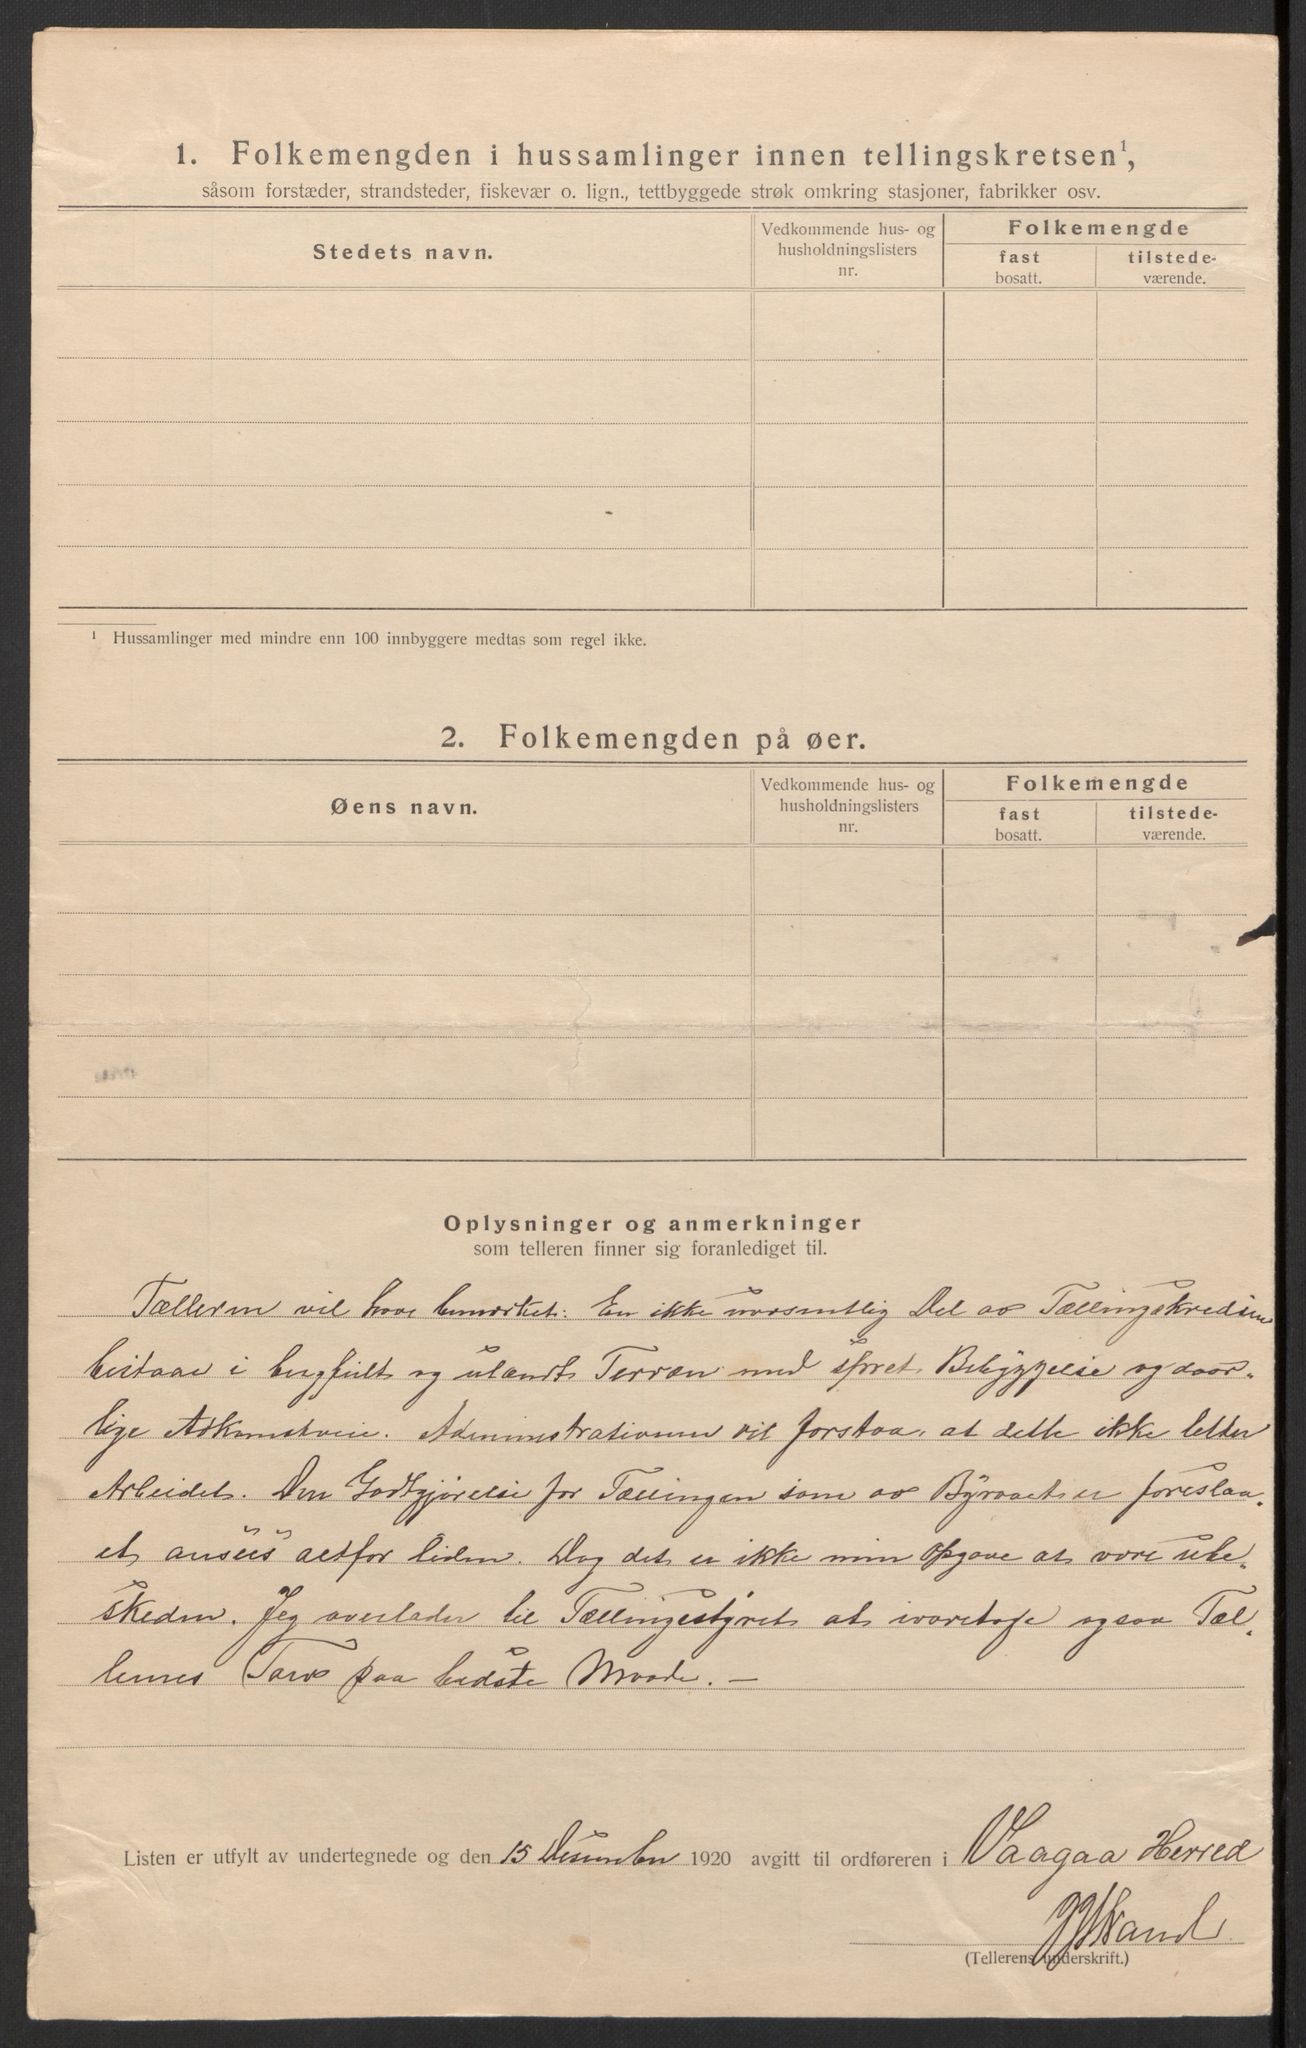 1. Folkemengden i hussamlinger innen tellingskretsen¹,
såsom forstæder, strandsteder, fiskevær o. lign., tettbyggede strøk omkring stasjoner, fabrikker osv.
Stedets navn.
Vedkommende hus- og husholdningslisters nr.
Folkemengde
fast bosatt.
tilstede-værende.
¹ Hussamlinger med mindre enn 100 innbyggere medtas som regel ikke.
2. Folkemengden på øer.
Øens navn.
Vedkommende hus- og husholdningslisters nr.
Folkemengde
fast bosatt.
tilstede-værende.
Oplysninger og anmerkninger
som telleren finner sig foranlediget til.
Tælleren vil have bemærket: En ikke uvæsentlig Del av Tællingskredsen
bestaar i bergfuldt og ulændt Terræn med spret Bebyggelse og daar-
lige Adkomstveie. Administrationen vil forstaa, at dette ikke letter
Arbeidet. Den Godtgjørelse for Tællingen som av Byraaet er foreslaa-
et ansees altfor liden. Dog det er ikke min Opgave at være ube-
skeden. Jeg overlader til Tællingsstyret at ivaretage ogsaa Tæl-
lernes Tarv paa bedste Maade. —
Listen er utfylt av undertegnede og den 15 Desember 1920 avgitt til ordføreren i Vaagaa Herred
(Tellerens underskrift.)